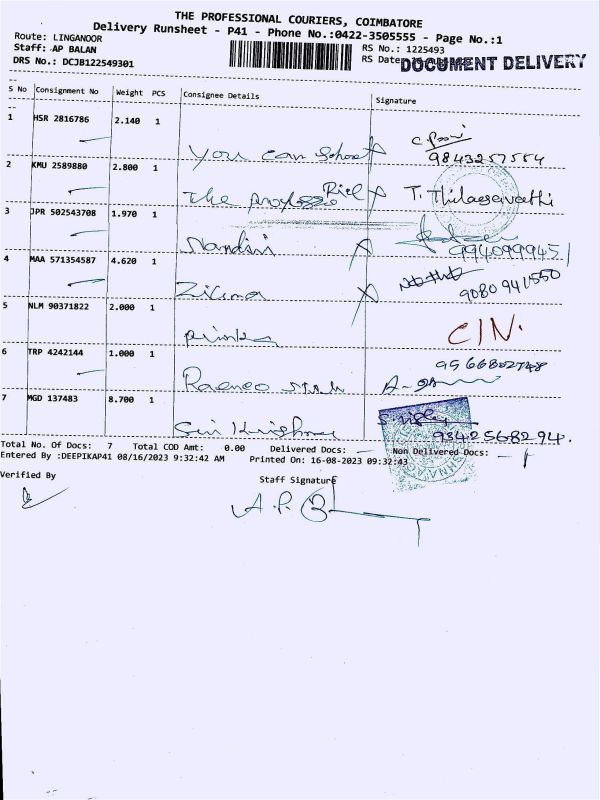 THE PROFESSIONAL COURIERS, COIMBATORE
Delivery Runsheet - P41 - Phone No.:0422-3505555 - Page No.:1
Route: LINGANOOR
RS No.: 1225493
Staff: AP BALAN
RS Date
DOCUMENT DELIVERY
DRS No.: DCJB122549301
S No Consignment No Weight PCS Consignee Details Signature
1 HSR 2816786 2.140 1
You can
9843257554
2 KMU 2589880 2.800 1
The
T. Thilagavathi
3 JPR 502543708 1.970 1
Nandini
9940999451
4 MAA 571354587 4.620 1
9080941550
5 NLM 90371822 2.000 1
CIN.
6 TRP 4242144 1.000 1
9566802748
7 MGD 137483 8.700 1
9342568294.
Total No. Of Docs: 7 Total COD Amt: 0.00 Delivered Docs: Non Delivered Docs:
Entered By :DEEPIKAP41 08/16/2023 9:32:42 AM Printed On: 16-08-2023 09:32:43
Verified By
Staff Signature